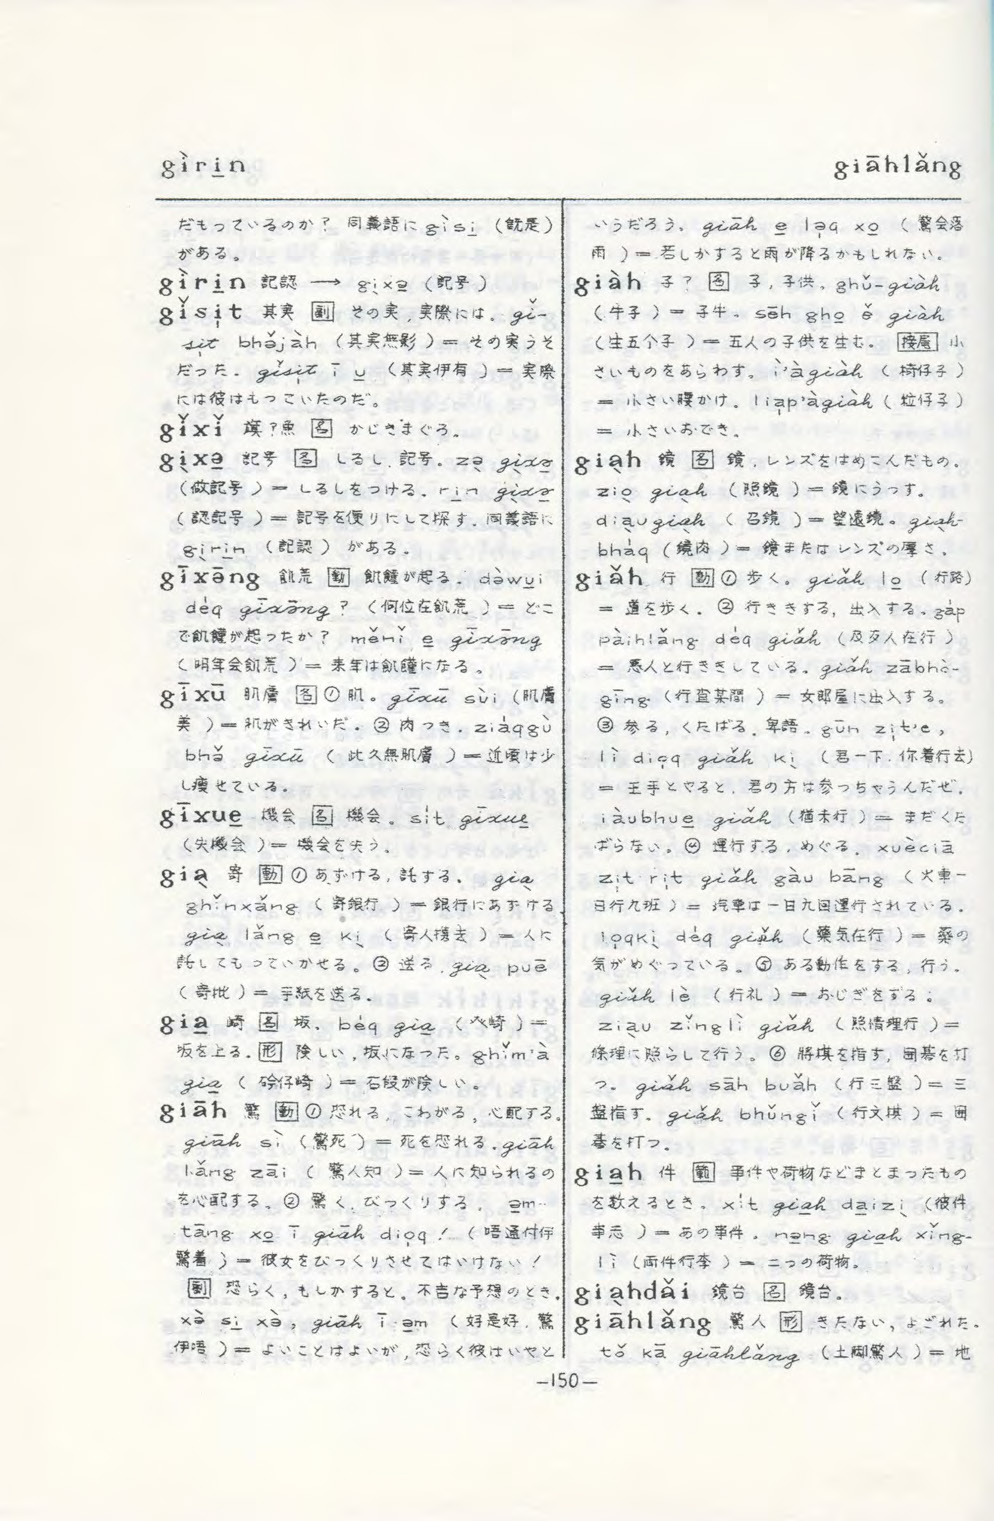 gìri̱n
giāhlǎng
だもっているのか? 同義語に gìsi̱ (既是)
がある。
gìri̱n 記認 ―→ gi̖xə̱ (記号)
gǐsi̍t 其実 [副] その実,実際には。gǐ-
si̍t bhə̌jàh (其実無影) = その実うそ
だった。gǐsi̍t ī u̱ (其実伊有) = 実際
には彼はもっていたのだ。
gǐxǐ 旗?魚 [名] かじきまぐろ。
gi̖xə̱ 記号 [名] しるし,記号。zə̖ gi̖xə̱
(做記号) = しるしをつける。ri̱n gi̖xə̱
(認記号) = 記号を便りにして探す。同義語に
gìri̱n (記認) がある。
gīxāng 飢荒 [動] 飢饉が起る。dàwu̱i
déq gīxāng? (何位在飢荒) = どこ
で飢饉が起ったか? měnǐ e̱ gīxāng
(明年会飢荒) = 来年は飢饉になる。
gīxū 肌膚 [名] ① 肌。gīxū sùi (肌膚
美) = 肌がきれいだ。② 肉つき。ziáqgù
bhə̌ gīxū (此久無肌膚) = 近頃は少
し痩せている。
gīxue̱ 機会 [名] 機会。si̍t gīxue̱
(失機会) = 機会を失う。
gia̖ 寄 [動] ① あずける,託する。gia̖
ghǐnxǎng (寄銀行) = 銀行にあずける
gia̖ lǎng e̱ ki̖ (寄人携去) = 人に
託してもっていかせる。② 送る。gia̖ puē
(寄批) = 手紙を送る。
gia̱ 崎 [名] 坂。béq gia̱ ( 崎) =
坂を上る。[形] 険しい,坂になった。ghǐm'à
gia̱ ( 仔崎) = 石段が険しい。
giāh 驚 [動] ① 恐れる,こわがる,心配する。
giāh sì (驚死) = 死を恐れる。giāh
lǎng zāi (驚人知) = 人に知られるの
を心配する。② 驚く,びっくりする。əm-
tāng xo̱ ī giāh dio̖q! (唔通付伊
驚着) = 彼女をびっくりさせてはいけない!
[副] 恐らく,もしかすると。不吉な予想のとき。
xə̀ si̱ xə̀, giāh ī əm (好是好,驚
伊唔) = よいことはよいが,恐らく彼はいやと
いうだろう。giāh e̱ la̖q xo̱ (驚会落
雨) = 若しかすると雨が降るかもしれない。
giàh 子? [名] 子,子供。ghǔ-giàh
(牛子) = 子牛。sēh gho̱ ě giàh
(生五个子) = 五人の子供を生む。[接尾] 小
さいものをあらわす。ì'àgiàh (椅仔子)
= 小さい腰かけ。liap'àgiàh (粒仔子)
= 小さいおでき。
gia̖h 鏡 [名] 鏡,レンズをはめこんだもの。
zio̖ gia̖h (照鏡) = 鏡にうつす。
dia̱ugia̖h (召鏡) = 望遠鏡。gia̖h-
bháq (鏡肉) = 鏡またはレンズの厚さ。
giǎh 行 [動] ① 歩く。giǎh lo̱ (行路)
= 道を歩く。② 行ききする,出入する。gáp
pàihlǎng déq giǎh (及歹人在行)
= 悪人と行ききしている。giǎh zābhò-
gīng (行査某間) = 女郎屋に出入する。
③ 参る,くたばる。卑語。gūn zi̍t'e,
lì dio̖q giǎh ki̖ (君一下,你着行去)
= 王手とやると,君の方は参っちゃうんだぜ。
iàubhue̱ giǎh (猶未行) = まだくた
ばらない。④ 運行する,めぐる。xuèciā
zi̍t ri̍t giǎh gàu bāng (火車一
日行九班) = 汽車は一日九回運行されている。
lo̖qki̖ déq giǎh (薬気在行) = 薬の
気がめぐっている。⑤ ある動作をする,行う。
giǎh lè (行礼) = おじぎをする。
zia̖u zǐnglì giǎh (照情理行) =
条理に照らして行う。⑥ 将棋を指す,囲碁を打
つ。giǎh sāh buǎh (行三盤) = 三
盤指す。giǎh bhǔngǐ (行文棋) = 囲
碁を打つ。
gia̱h 件 [範] 事件や荷物などまとまったもの
を数えるとき。xi̍t gia̱h da̱izi̖ (彼件
事志) = あの事件。nə̱ng gia̱h xǐng-
lì (両件行李) = 二つの荷物。
gia̖hdǎi 鏡台 [名] 鏡台。
giāhlǎng 驚人 [形] きたない,よごれた。
tǒ kā giāhlǎng (土脚驚人) = 地
—150—